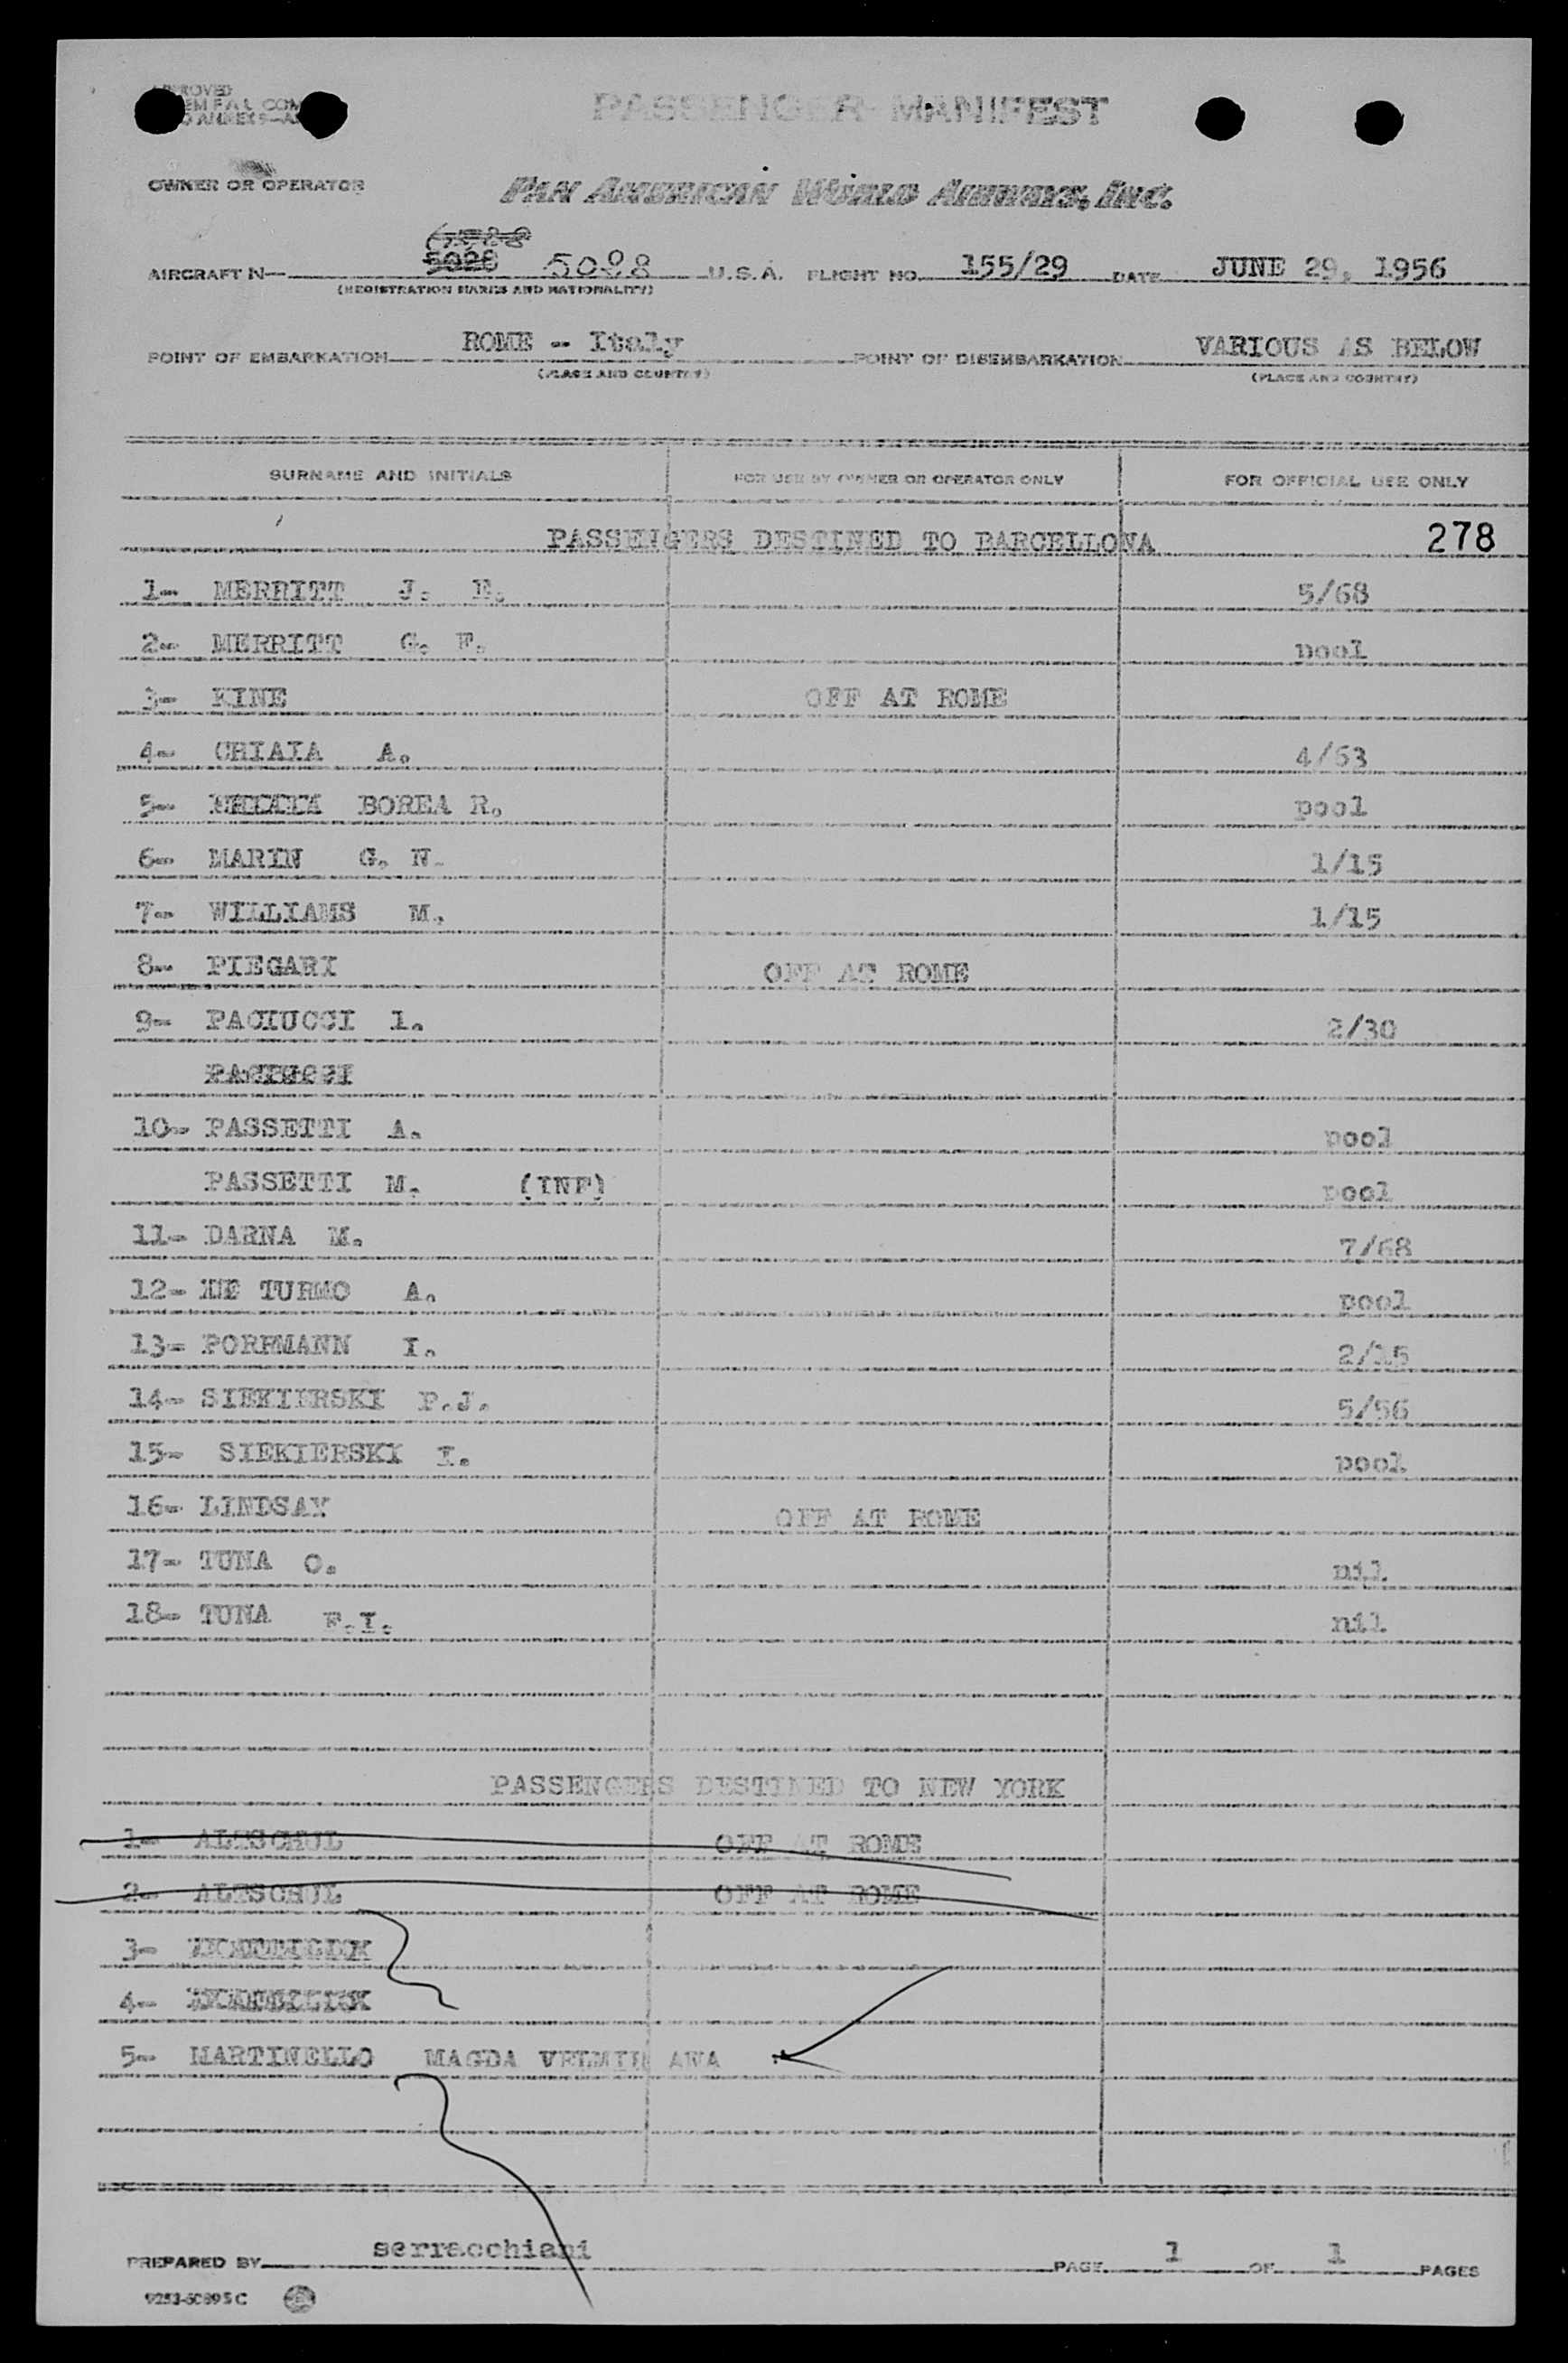 PASSENGER MANIFEST
OWNER OR OPERATOR PAN AMERICAN WORLD AIRWAYS, INC.
5028 5088
AIRCRAFT N— U.S.A. FLIGHT NO. 155/29 DATE JUNE 29, 1956
(REGISTRATION MARKS AND NATIONALITY)
POINT OF EMBARKATION ROME -- Italy POINT OF DISEMBARKATION VARIOUS AS BELOW
(PLACE AND COUNTRY) (PLACE AND COUNTRY)
SURNAME AND INITIALS FOR USE BY OWNER OR OPERATOR ONLY FOR OFFICIAL USE ONLY
PASSENGERS DESTINED TO BARCELLONA 278
1- MERRITT J. E. 5/68
2- MERRITT G. F. pool
3- KINE OFF AT ROME
4- CHIAIA A. 4/63
5- BOREA R. pool
6- MARIN G. N. 1/15
7- WILLIAMS M. 1/15
8- PIEGARI OFF AT ROME
9- PACIUCCI I. 2/30
PACIUCCI
10- PASSETTI A. pool
PASSETTI M. (INF) pool
11- DARNA M. 7/68
12- DE TURMO A. pool
13- PORFMANN I. 2/15
14- SIEKIERSKI P.J. 5/56
15- SIEKIERSKI I. pool
16- LINDSAY OFF AT ROME
17- TUNA O. nil
18- TUNA F.I. nil
PASSENGERS DESTINED TO NEW YORK
1- ALTSCHUL OFF AT ROME
2- ALTSCHUL OFF AT ROME
3-
4-
5- MARTINELLO MAGDA
PREPARED BY serracchiani PAGE 1 OF 1 PAGES